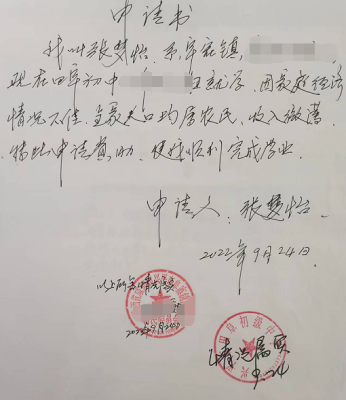 申请书
我叫张梦怡,系军宏镇,
现在田军初中 班就学,因家庭经济
情况不佳,全家人口均属农民,收入微薄,
特此申请资助,使我顺利完成学业.
申请人:张梦怡.
2022年9月24日.
以上所写情况属实
2022年9月24日
初级中
情况属实
9.24